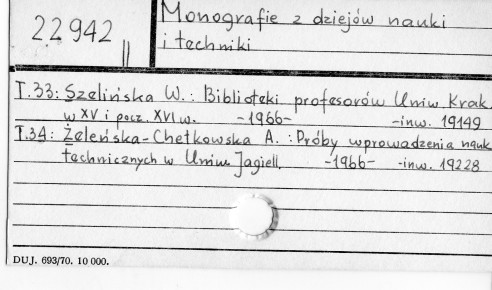 22942 II
Monografie z dziejów nauki
i techniki
T.33: Szelińska W.: Biblioteki profesorów Uniw. Krak.
w XV i pocz. XVI w. -1966- -inw. 19149
T.34: Żeleńska-Chełkowska A.: Próby wprowadzenia nauk
technicznych w Uniw. Jagiell. -1966- -inw. 19228
DUJ. 693/70. 10 000.